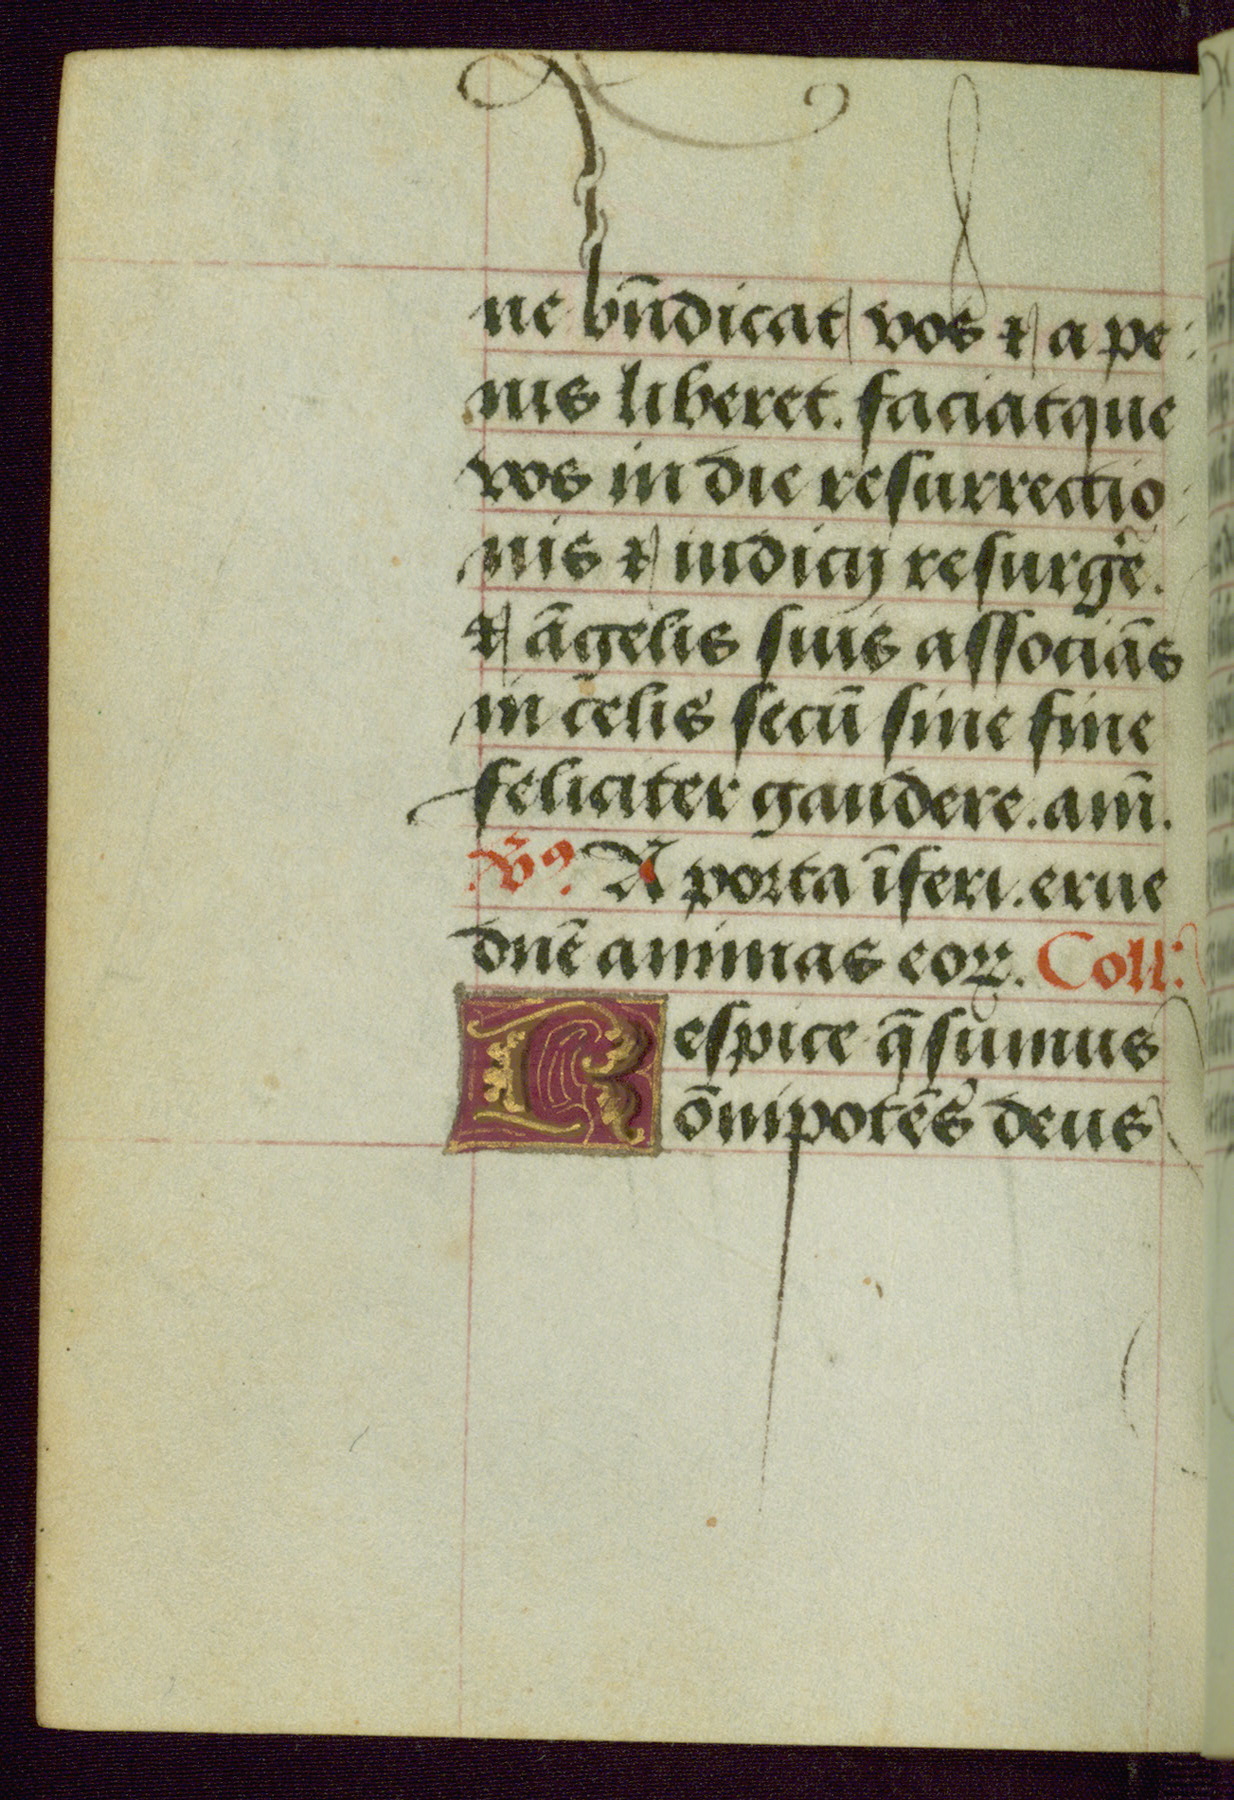 ne bn̄dicat vos ⁊ a pe
nis liberet. faciatque
vos in die resurrectio
nis ⁊ iudicij resurgẽ.
⁊ āgelis suis associās
in celis secū sine fine
feliciter gaudere. am̄.
v̄9. A porta īferi. erue
dn̄e animas eoꝝ. Coll:
Respice q̄sumus
ōnipotēs deus